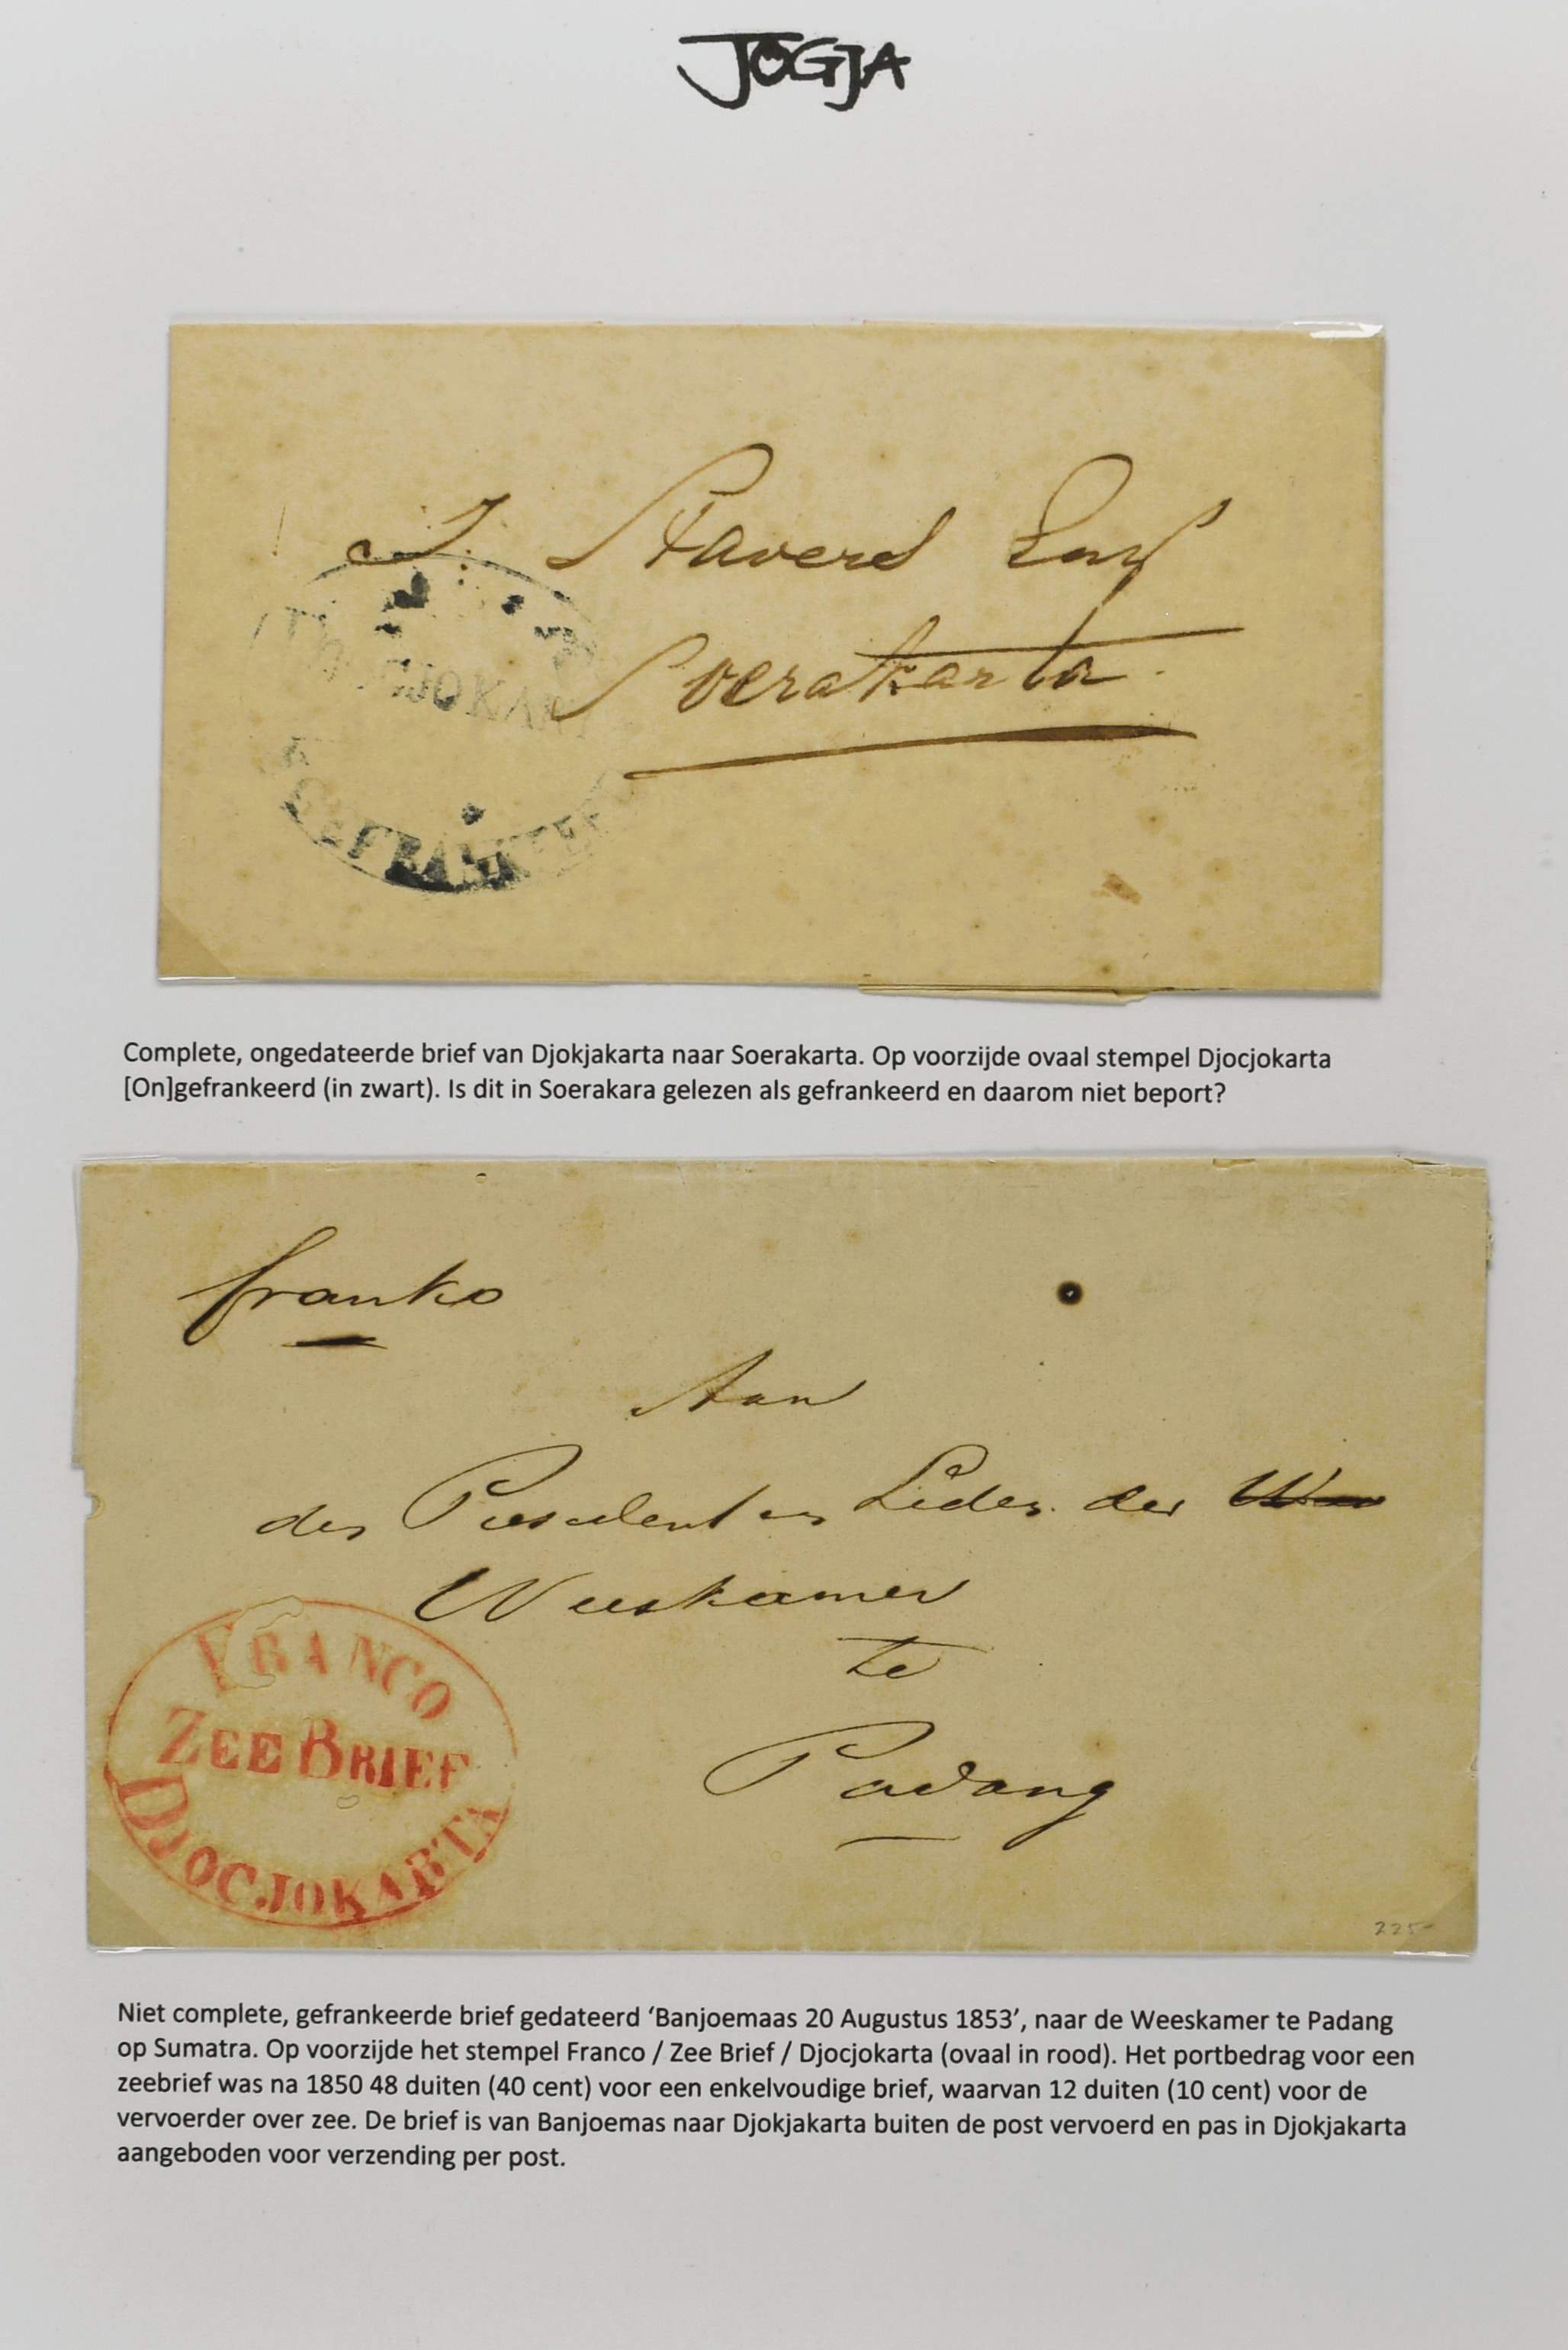 JOGJA
J. Stavers Esq
Soerakarta
GEFRANKEE
Complete, ongedateerde brief van Djokjakarta naar Soerakarta. Op voorzijde ovaal stempel Djocjokarta
[On]gefrankeerd (in zwart). Is dit in Soerakara gelezen als gefrankeerd en daarom niet beport?
franko
Aan
den President en Leden der
Weeskamer
te
Padang
FRANCO
ZEE BRIEF
DJOCJOKARTA
225-
Niet complete, gefrankeerde brief gedateerd ‘Banjoemaas 20 Augustus 1853’, naar de Weeskamer te Padang
op Sumatra. Op voorzijde het stempel Franco / Zee Brief / Djocjokarta (ovaal in rood). Het portbedrag voor een
zeebrief was na 1850 48 duiten (40 cent) voor een enkelvoudige brief, waarvan 12 duiten (10 cent) voor de
vervoerder over zee. De brief is van Banjoemas naar Djokjakarta buiten de post vervoerd en pas in Djokjakarta
aangeboden voor verzending per post.